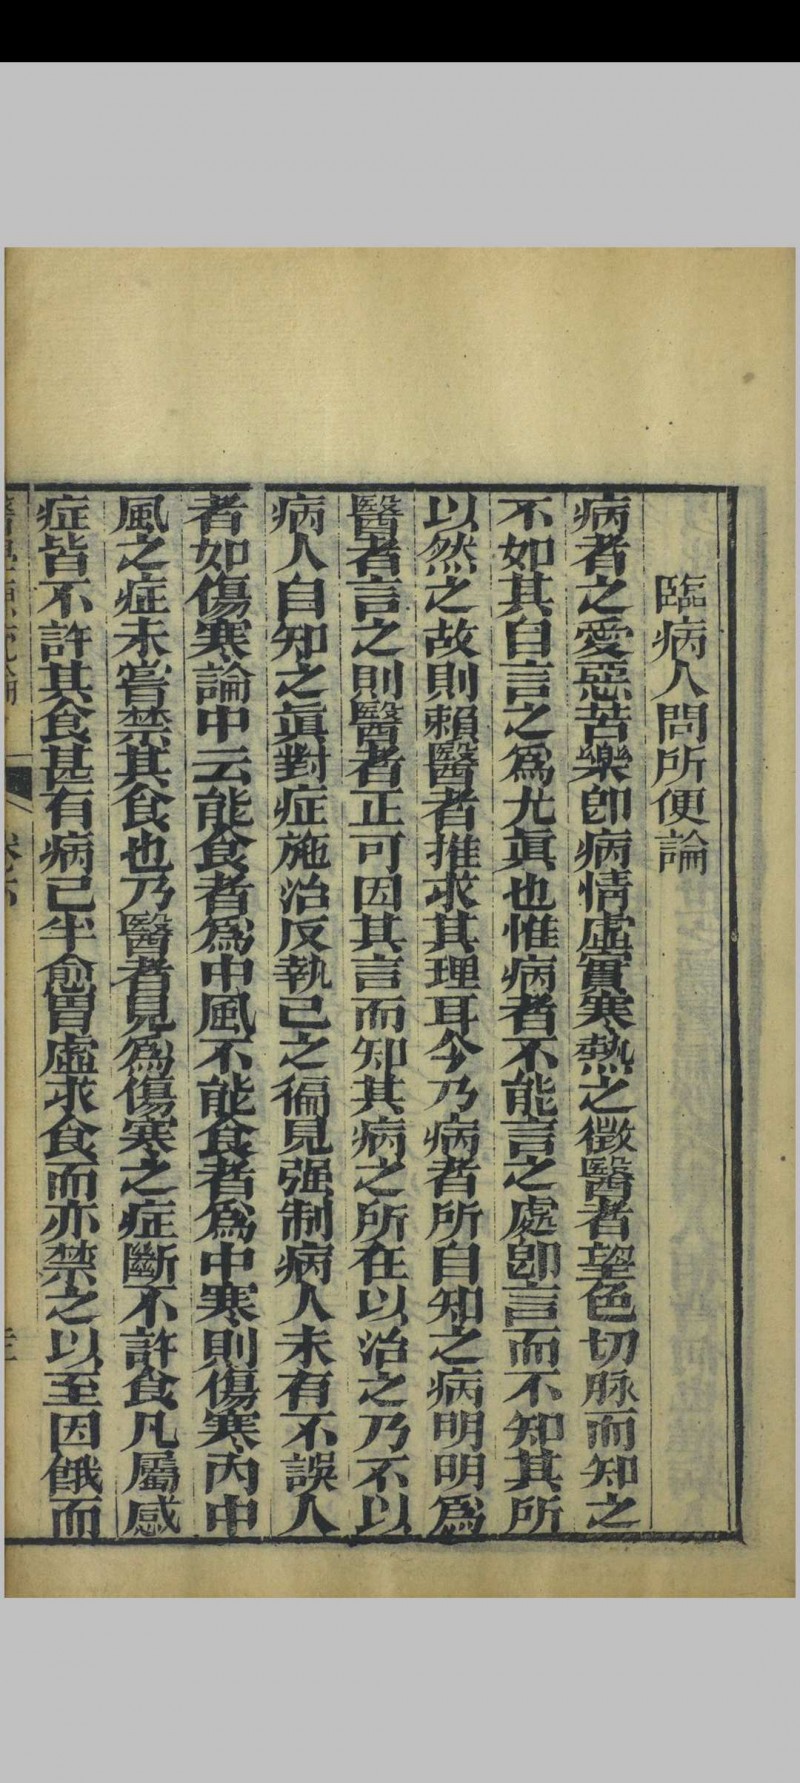 臨病人問所便論
病者之愛惡苦樂卽病情虛實寒熱之徵醫者望色切脉而知之
不如其自言之爲尤眞也惟病者不能言之處卽言而不知其所
以然之故則賴醫者推求其理耳今乃病者所自知之病明明爲
醫者言之則醫者正可因其言而知其病之所在以治之乃不以
病人自知之眞對症施治反執己之徧見强制病人未有不誤人
者如傷寒論中云能食者爲中風不能食者爲中寒則傷寒內中
風之症未嘗禁其食也乃醫者見爲傷寒之症斷不許食凡屬感
症皆不許其食甚有病已半愈胃虛求食而亦禁之以至因餓而
卷六